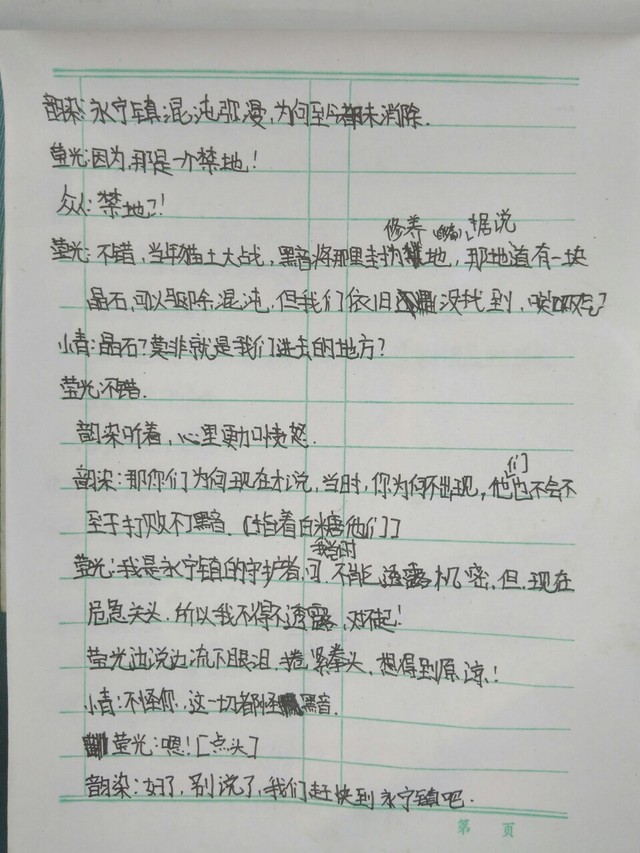 韵染:永宁镇混沌弥漫,为何至今都未消除.
萤光:因为,那是一个禁地!
众人:禁地?!
修养 据说
萤光:不错,当年猫土大战,黑音将那里封为禁地,那地道有一块
晶石,可以驱除混沌,但我们依旧没找到,唉
小青:晶石?莫非就是我们进去的地方?
萤光:不错.
韵染听着,心里更加愤怒.
韵染:那你们为何现在才说,当时,你为何不出现,他们也不会不
至于打败不了黑音.[指着白糖他们]
我当时
萤光:我是永宁镇的守护者,不能透露机密,但现在
危急关头.所以我不得不透露,对不起!
萤光边说边流下眼泪.捲紧拳头,想得到原谅!
小青:不怪你,这一切都怪黑音.
萤光:嗯![点头]
韵染:好了,别说了,我们赶快到永宁镇吧.
第 页